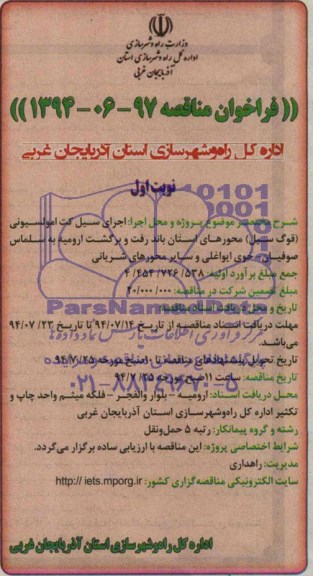 وزارت راه و شهرسازی
اداره کل راه و شهرسازی استان
آذربایجان غربی
(( فراخوان مناقصه ۹۷-۰۶-۱۳۹۴ ))
اداره کل راه‌وشهرسازی استان آذربایجان غربی
نوبت اول
شرح مختصر موضوع پروژه و محل اجرا: اجرای سیل کت امولسیونی
(فوگ سیل) محورهای استان باند رفت و برگشت ارومیه به سلماس
صوفیان - خوی ایواغلی و سایر محورهای شریانی
جمع مبلغ برآورد اولیه: ۴/۴۵۴/۷۲۶/۵۳۸
مبلغ تضمین شرکت در مناقصه: ۲۰/۰۰۰/۰۰۰
تاریخ و محل دریافت اسناد مناقصه:
مهلت دریافت اسناد مناقصه از تاریخ ۹۴/۰۷/۱۴ تا تاریخ ۹۴/۰۷/۲۳
می‌باشد.
تاریخ تحویل پیشنهادهای مناقصه تا ۱۰ صبح مورخه ۹۴/۷/۲۵
تاریخ مناقصه: ساعت ۱۱ صبح مورخه ۹۴/۷/۲۵
محل دریافت اسناد: ارومیه - بلوار والفجر - فلکه میثم واحد چاپ و
تکثیر اداره کل راه‌وشهرسازی استان آذربایجان غربی
رشته و گروه پیمانکار: رتبه ۵ حمل‌ونقل
شرایط اختصاصی پروژه: این مناقصه با ارزیابی ساده برگزار می‌گردد.
مدیریت: راهداری
سایت الکترونیکی مناقصه‌گزاری کشور: http:// iets.mporg.ir
اداره کل راه‌وشهرسازی استان آذربایجان غربی
ParsNamadData
۰۲۱-۸۸۳۴۹۶۷۰-۵